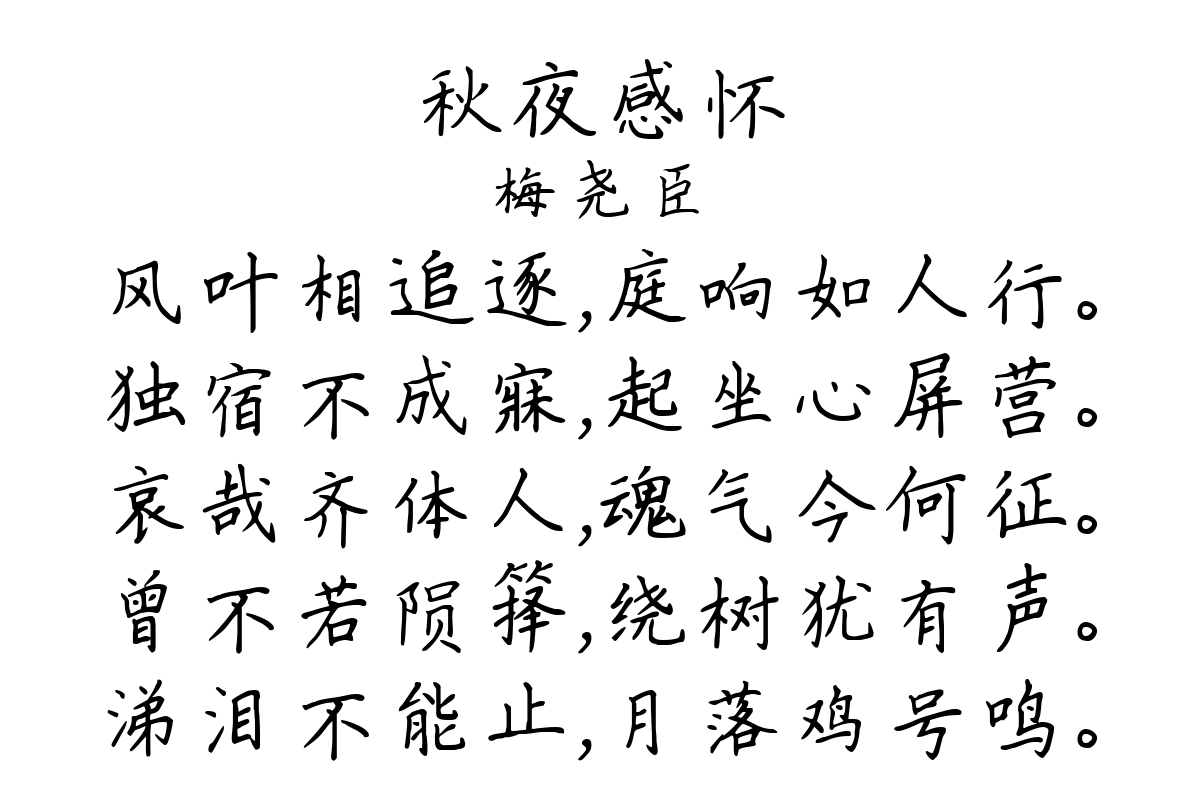 秋夜感怀
梅尧臣
风叶相追逐,庭响如人行。
独宿不成寐,起坐心屏营。
哀哉齐体人,魂气今何征。
曾不若陨箨,绕树犹有声。
涕泪不能止,月落鸡号鸣。